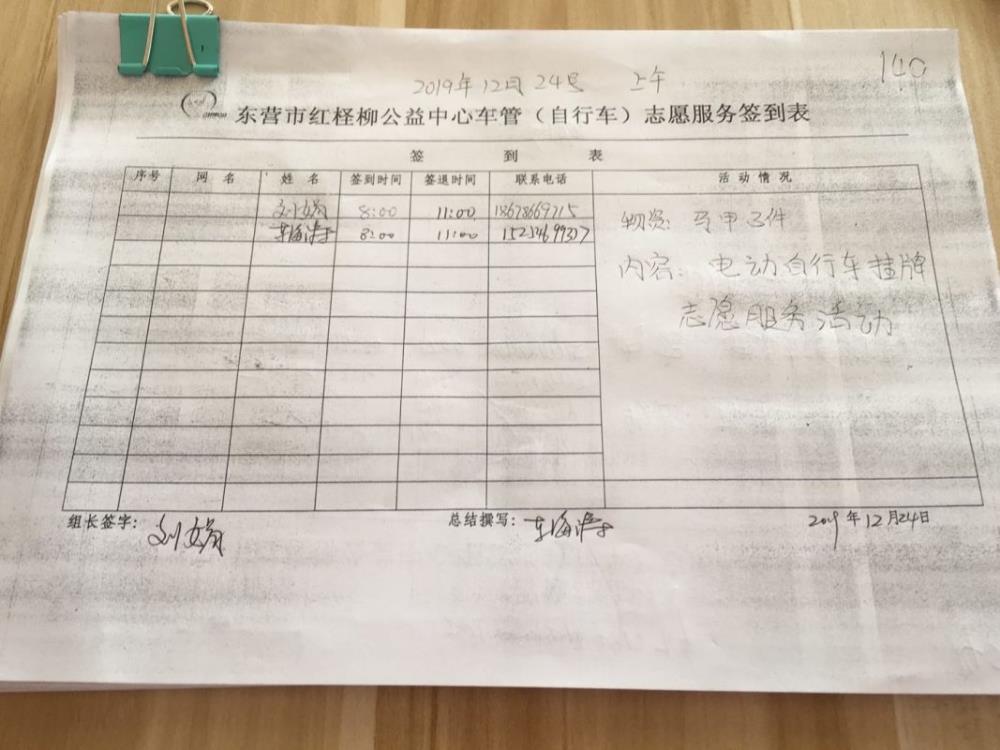 2019年12月24号 上午
140
东营市红柽柳公益中心车管（自行车）志愿服务签到表
签 到 表
序号 网名 姓名 签到时间 签退时间 联系电话 活动情况
刘娟 8:00 11:00 18678669715
8:00 11:00
物资: 马甲2件
内容: 电动自行车挂牌
志愿服务活动
组长签字: 刘娟 总结撰写: 2019年12月24日